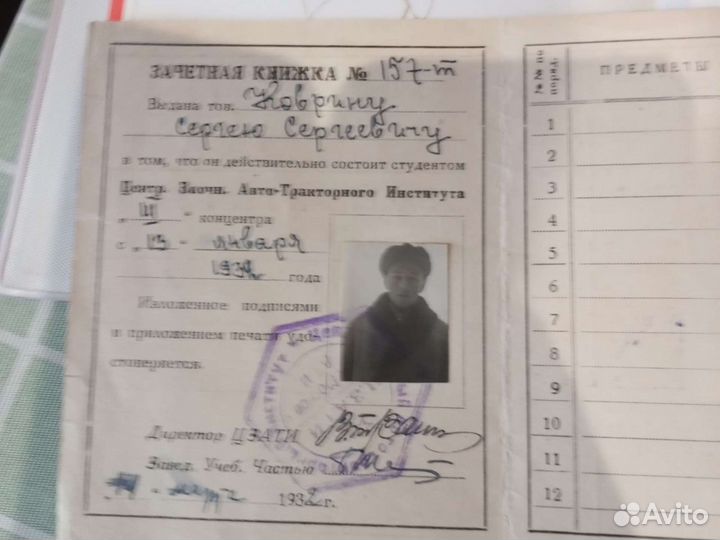 ЗАЧЕТНАЯ КНИЖКА № 157-т
Выдана тов. Коврину
Сергею Сергеевичу
в том, что он действительно состоит студентом
Центр. Заочн. Авто-Тракторного Института
„ III " концентра
с „ 13 - января
1932 года
Изложенное подписями
и приложением печати удо-
стоверяется.
Директор ЦЗАТИ
Завед. Учеб. Частью
1932 г.
№№ по
поряд.
ПРЕДМЕТЫ
1
2
3
4
5
6
7
8
9
10
11
12
Avito